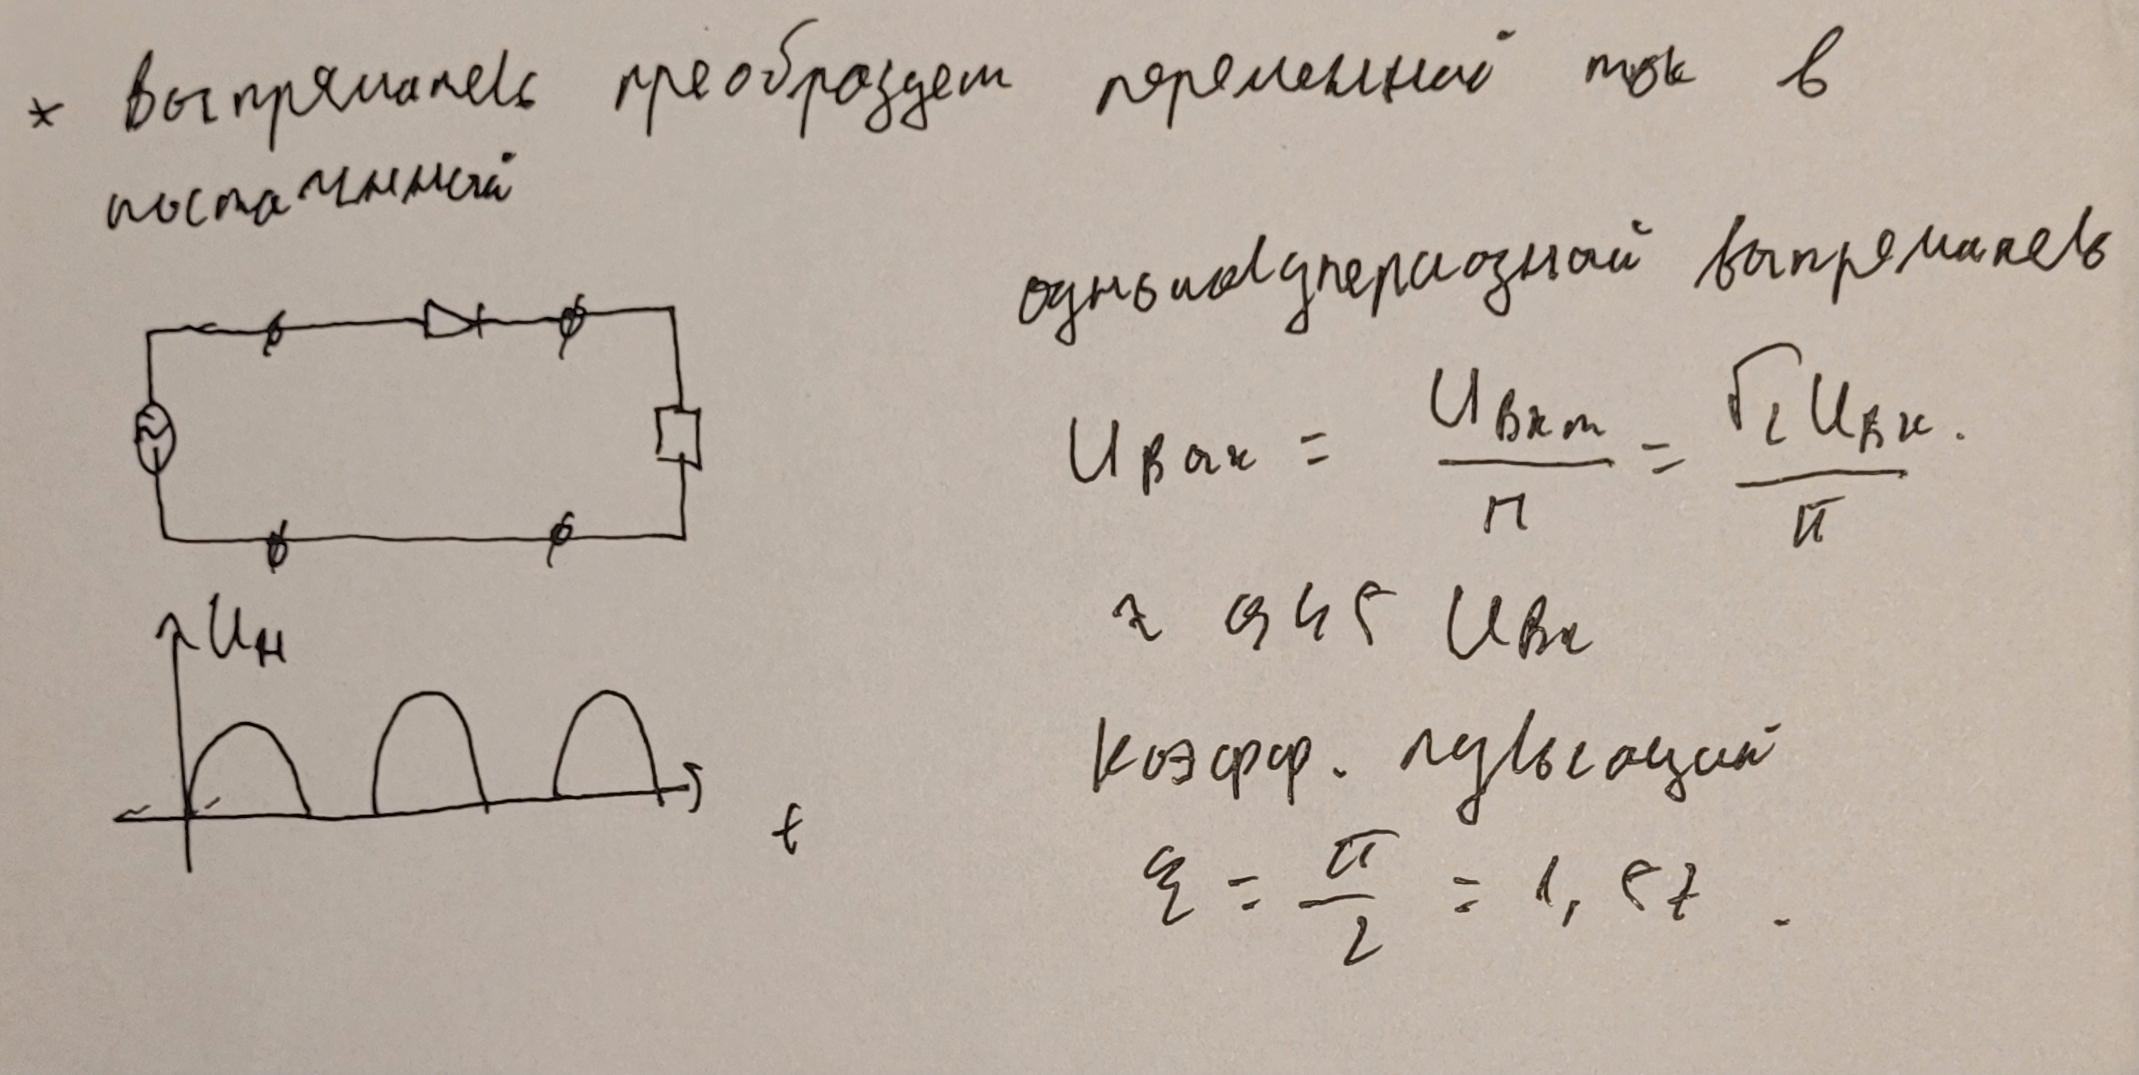 * выпрямитель преобразует переменный ток в
постоянный
однополупериодный выпрямитель
Uвых = Uвхm / π = √2 Uвх. / π
≈ 0,45 Uвх
Uн
t
Коэфф. пульсаций
ξ = π / 2 = 1,57.